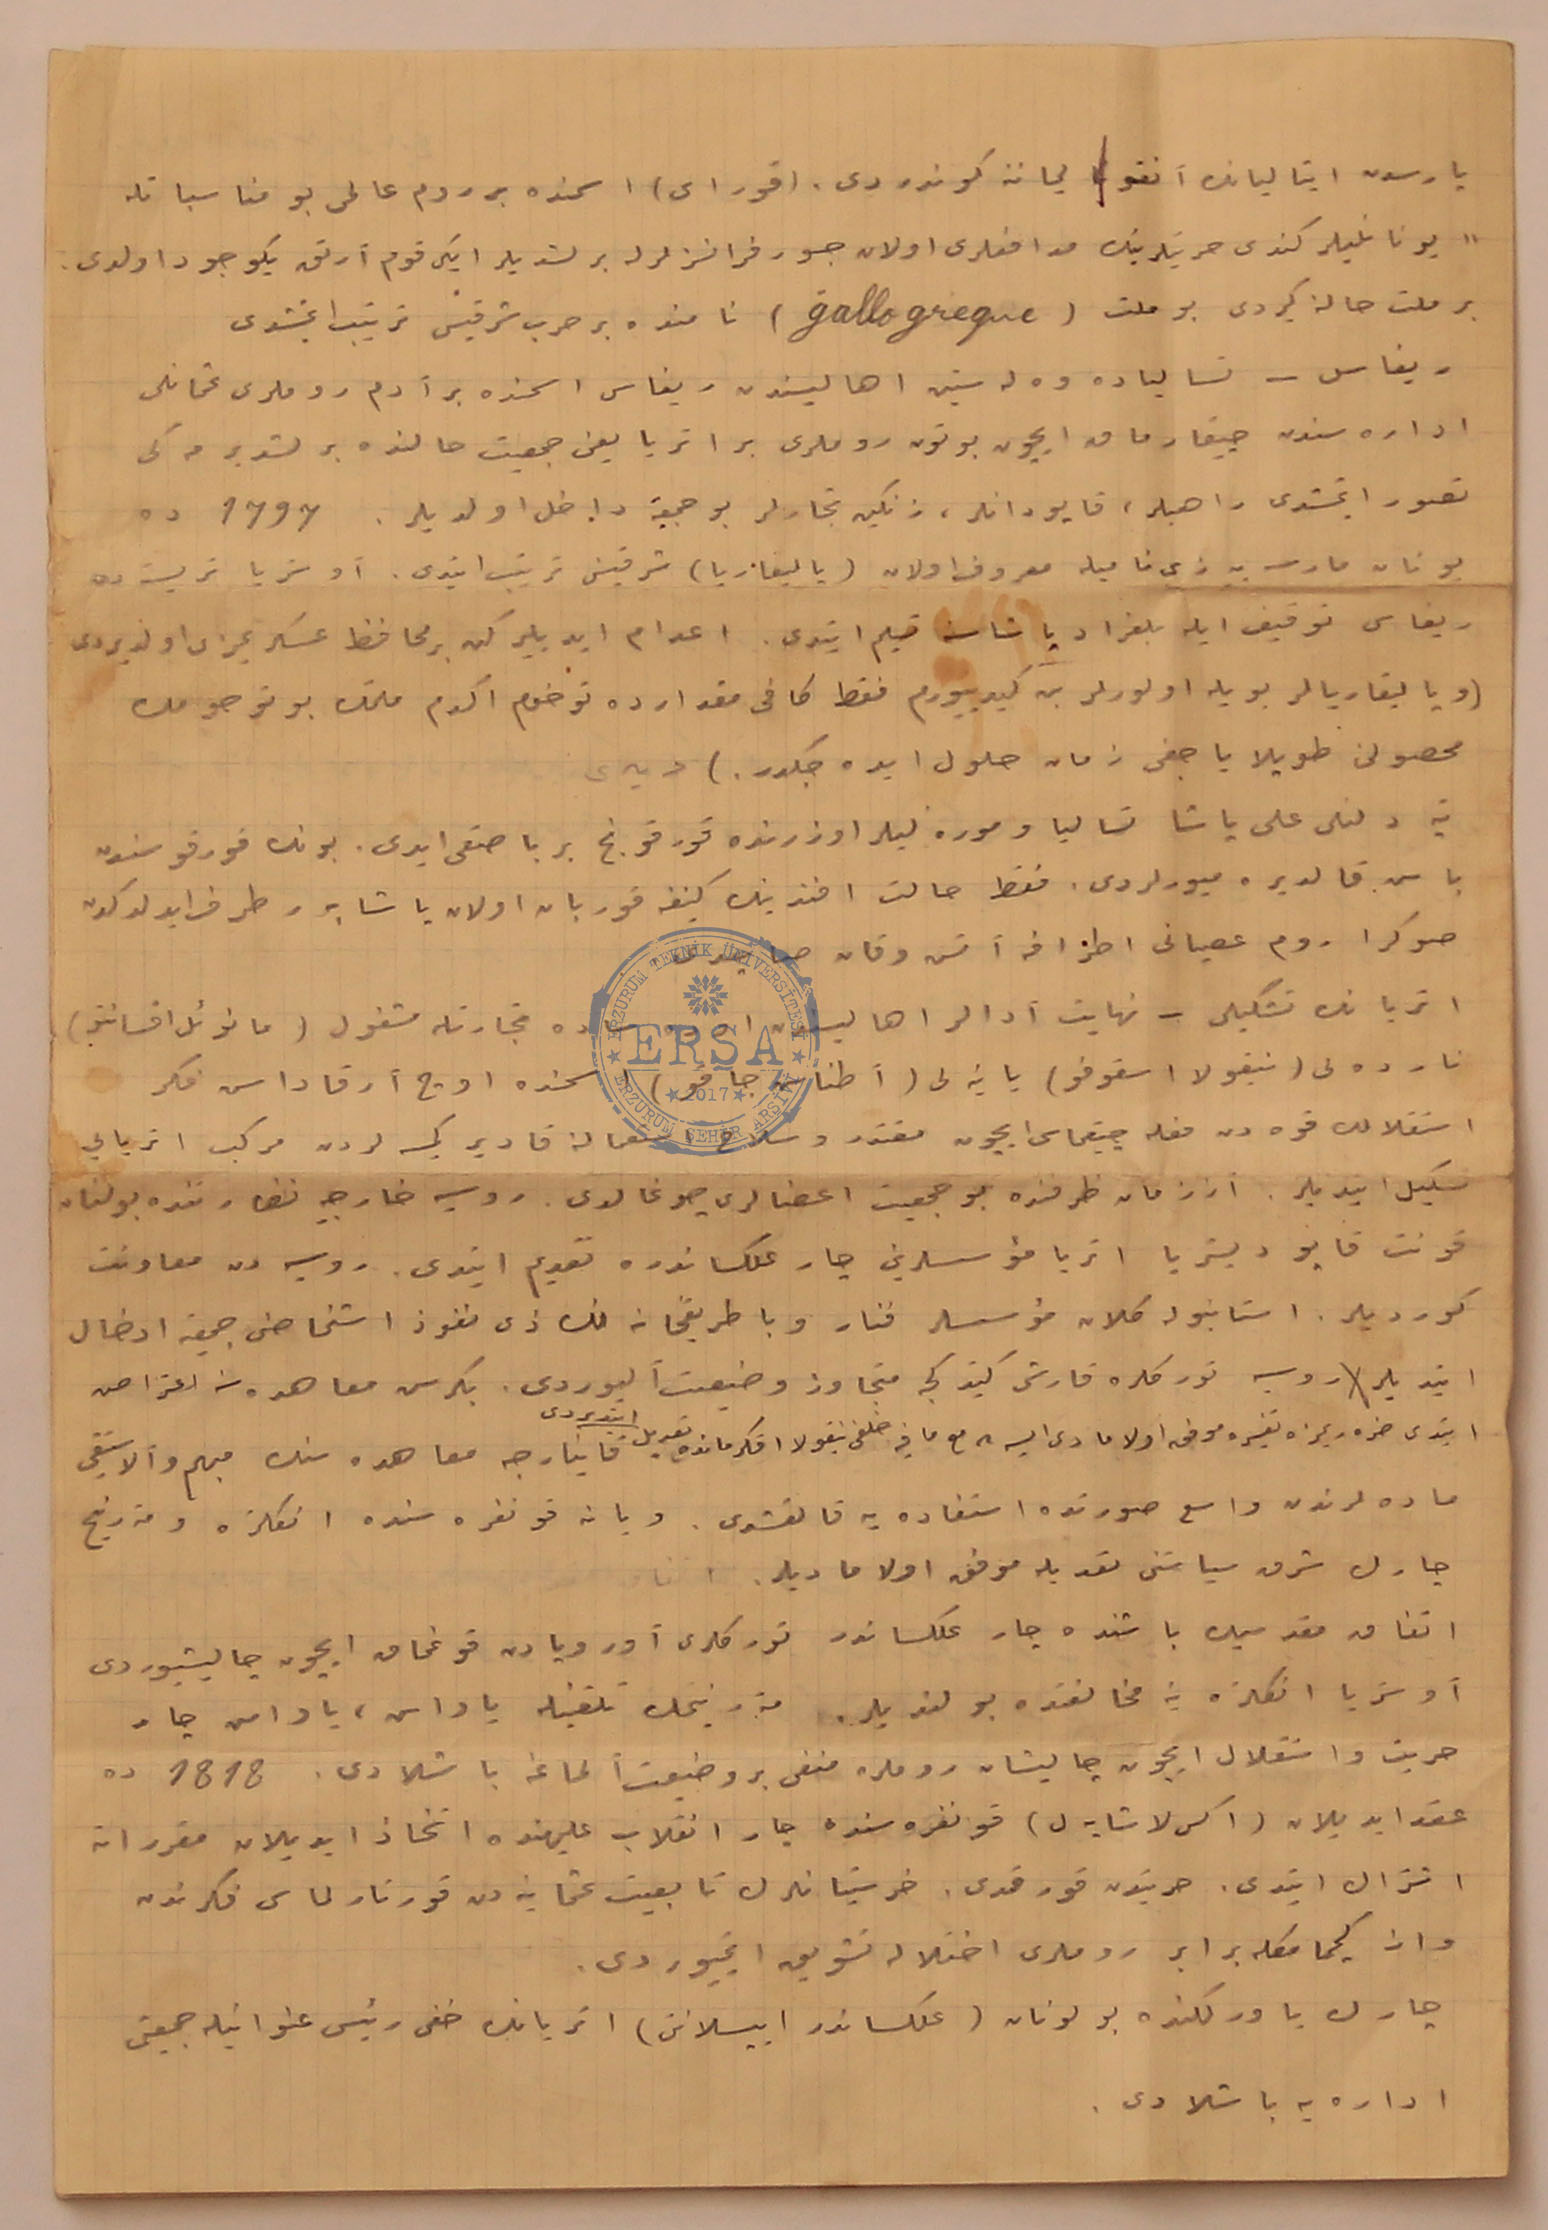 پارسدن ایتالیانك آنقو لیماننه كوندردی. (قورای) اسمنده بر روم عالمی بو مناسباتله
" یونانلیلر كندی حریتلرینك مدافعلری اولان جسور فرانسزلرله برلشدیلر ایكی قوم آرتق یكوجود اولدی.
بر ملت حالنه كیردی بو ملت (gallogreque) نامنده بر حرب شرقیسی ترتیب ایتمشدی
ریغاس – تسالیاده وه لستین اهالیسندن ریغاس اسمنده بر آدم روملری عثمانلی
اداره سندن چیقارمق ایچون بوتون روملری بر اتریا یعنی جمعیت حالنده برلشدیرمه كی
تصور ایتمشدی راهبلر، قاپودانلر، زنكین تجارلر بو جمعیته داخل اولدیلر. 1797 ده
یونان مارسیه زی نامیله معروف اولان (پالیقاریا) شرقیسنی ترتیب ایتدی. آوستریا تریسته ده
ریغاسی توقیف ایله بلغراد پاشاسنه تسلیم ایتدی. اعدام ایدیلیركن بر محافظ عسكر یمزی اولدیردی
(و پالیقاریالر بویله اولورلر بن كیدییورم فقط كافی مقدارده توخوم اكدم ملتك بو توخومك
محصولنی طوپلایاجغی زمان حلول ایده جكدر.) دیدی
تپه دلنلی علی پاشا تسالیا و موره لیلر اوزرنده قورقونج بر باصقی ایدی. بونك قورقوسندن
باش قالدیره میورلردی. فقط حالت افندینك كیفنه قوربان اولان پاشا بر طرف ایدلدكدن
صوكرا روم عصیانی اطرافه آتش و قان صاچدی
اتریانك تشكیلی – نهایت آدالر اهالیسندن اودساده تجارتله مشغول (مانوئل اقسانتو)
نارده لی (نیقولا اسقوفو) یانیه لی (آطناس چاقو) اسمنده اوچ آرقاداش فكر
استقلالك قوه دن فعله چیقماسی ایچون مقتدر و سلاح استعمالنه قادیر كیمسه لردن مركب اتریایی
تشكیل ایتدیلر. آز زمان ظرفنده بو جمعیت اعضالری چوغالدی. روسیه خارجیه نظارتنده بولنان
قونت قاپودیستریا اتریا مؤسسلرینی چار علكساندره تقدیم ایتدی. روسیه دن معاونت
كوردیلر. استانبوله كلان مؤسسلر فنار و پاطریقخانه نك ذی نفوذ اشخاصنی جمعیته ادخال
ایتدیلر روسیه توركلره قارشی كیتدكجه متجاوز وضعیت آلیوردی. بكرش معاهده سنه اعتراض
ایتدی یرینه تغییره موفق اولامادی ایسه ده خلفی نیقولا افكرمانده تعدیل ایتدیردی قاینارجه معاهده سنك مبهم و آلاستیقی
ماده لرندن واسع صورتده استفاده یه قالقشدی. ویانه قونفره سنده انكلتره و مه ترنیخ
چارك شرق سیاستنی تعدیله موفق اولامادیلر.
اتفاق مقدسك باشنده چار علكساندر توركلری آوروپادن قوغمق ایچون چالیشیوردی
آوستریا انكلتره یه مخالفتده بولندیلر. مه ترنیخك تلقینیله یاواش، یاواش چار
حریت و استقلال ایچون چالیشان روملره منفی بر وضعیت آلماغه باشلادی. 1818 ده
عقد ایدیلان (اكس لاشاپه ل) قونفره سنده چار انقلاب علیهنده اتخاذ ایدیلان مقرراته
اشتراك ایتدی. حریتدن قورقدی. خرستیانلرك تابعیت عثمانیه دن قورتارلماسی فكرندن
واز كچمامكله برابر روملری اختلاله تشویق ایتمیوردی.
چارك یاورلكنده بولونان (علكساندر ایپسلانتی) اتریانك خفی رئیسی عنوانیله جمعیتی
اداره یه باشلادی.
ERŞA
ERZURUM TEKNİK ÜNİVERSİTESİ
ERZURUM ŞEHİR ARŞİVİ
2017